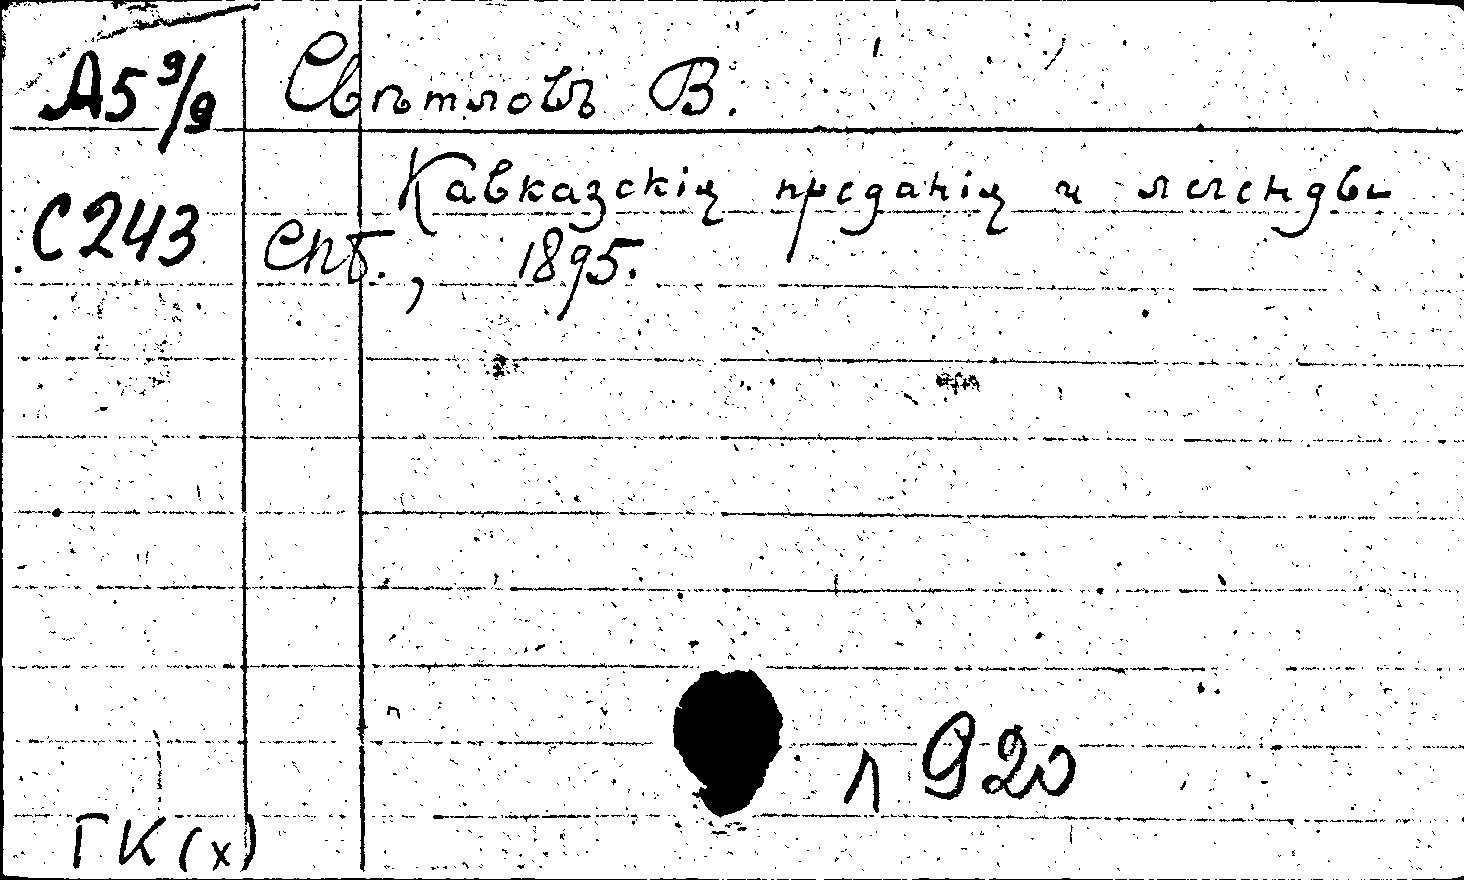 А5 9/9 Свѣтловъ В.
Кавказскія преданія и легенды
С243 Спб., 1895.
л 920
ГК(х)